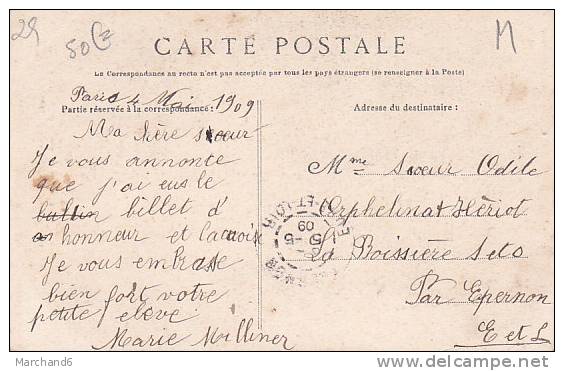 29
80
M
CARTE POSTALE
La Correspondance au recto n'est pas acceptée par tous les pays étrangers (se renseigner à la Poste)
Paris 4 Mai 1909
Partie réservée à la correspondance:
Adresse du destinataire:
Ma chère soeur
Je vous annonce
que j'ai eus le
billet d'
honneur et la croix
Je vous embrasse
bien fort votre
petite eleve
Marie Milliner
Mme Soeur Odile
Orphelinat Hériot
La Boissière S et O
Par Epernon
E et L
EURE-ET-LOIR
5-5
09
EPERNON
Marchand6
www.delcampe.net